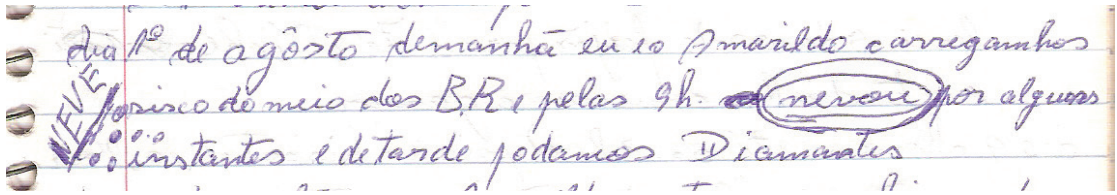 dia 1º de agôsto demanhã eu e o Amarildo carregamhos
NEVE
o sisco do meio dos B.R. e pelas 9h. nevou por alguns
instantes e detarde podamos Diamantes